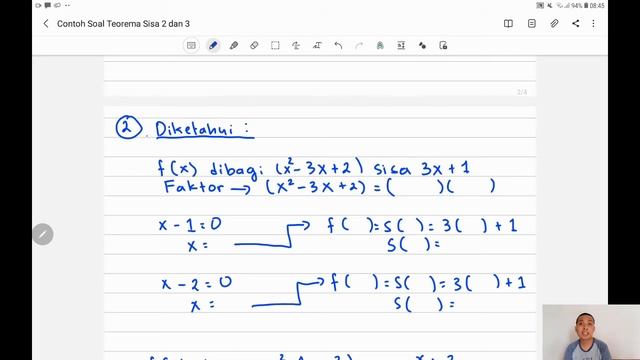 94% 08:45
Contoh Soal Teorema Sisa 2 dan 3
2/4
2. Diketahui :
f(x) dibagi (x²-3x+2) sisa 3x+1
Faktor → (x²-3x+2) = ( )( )
x-1=0 → f( ) = S( ) = 3( ) + 1
x = S( ) =
x-2=0 → f( ) = S( ) = 3( ) + 1
x = S( ) =